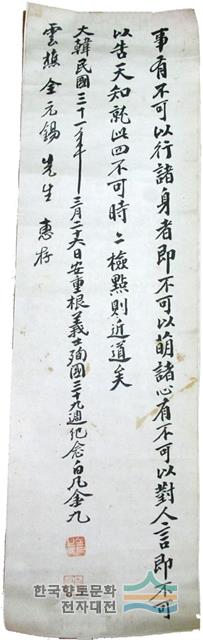 事有不可以行諸身者即不可以萌諸心有不可以對人言即不可
以告天知就此四不可時々檢點則近道矣
大韓民國三十一年三月二十六日安重根義士殉國三十九週紀念白凡金九
雲樵金元錫 先生 惠存
한국향토문화
전자대전